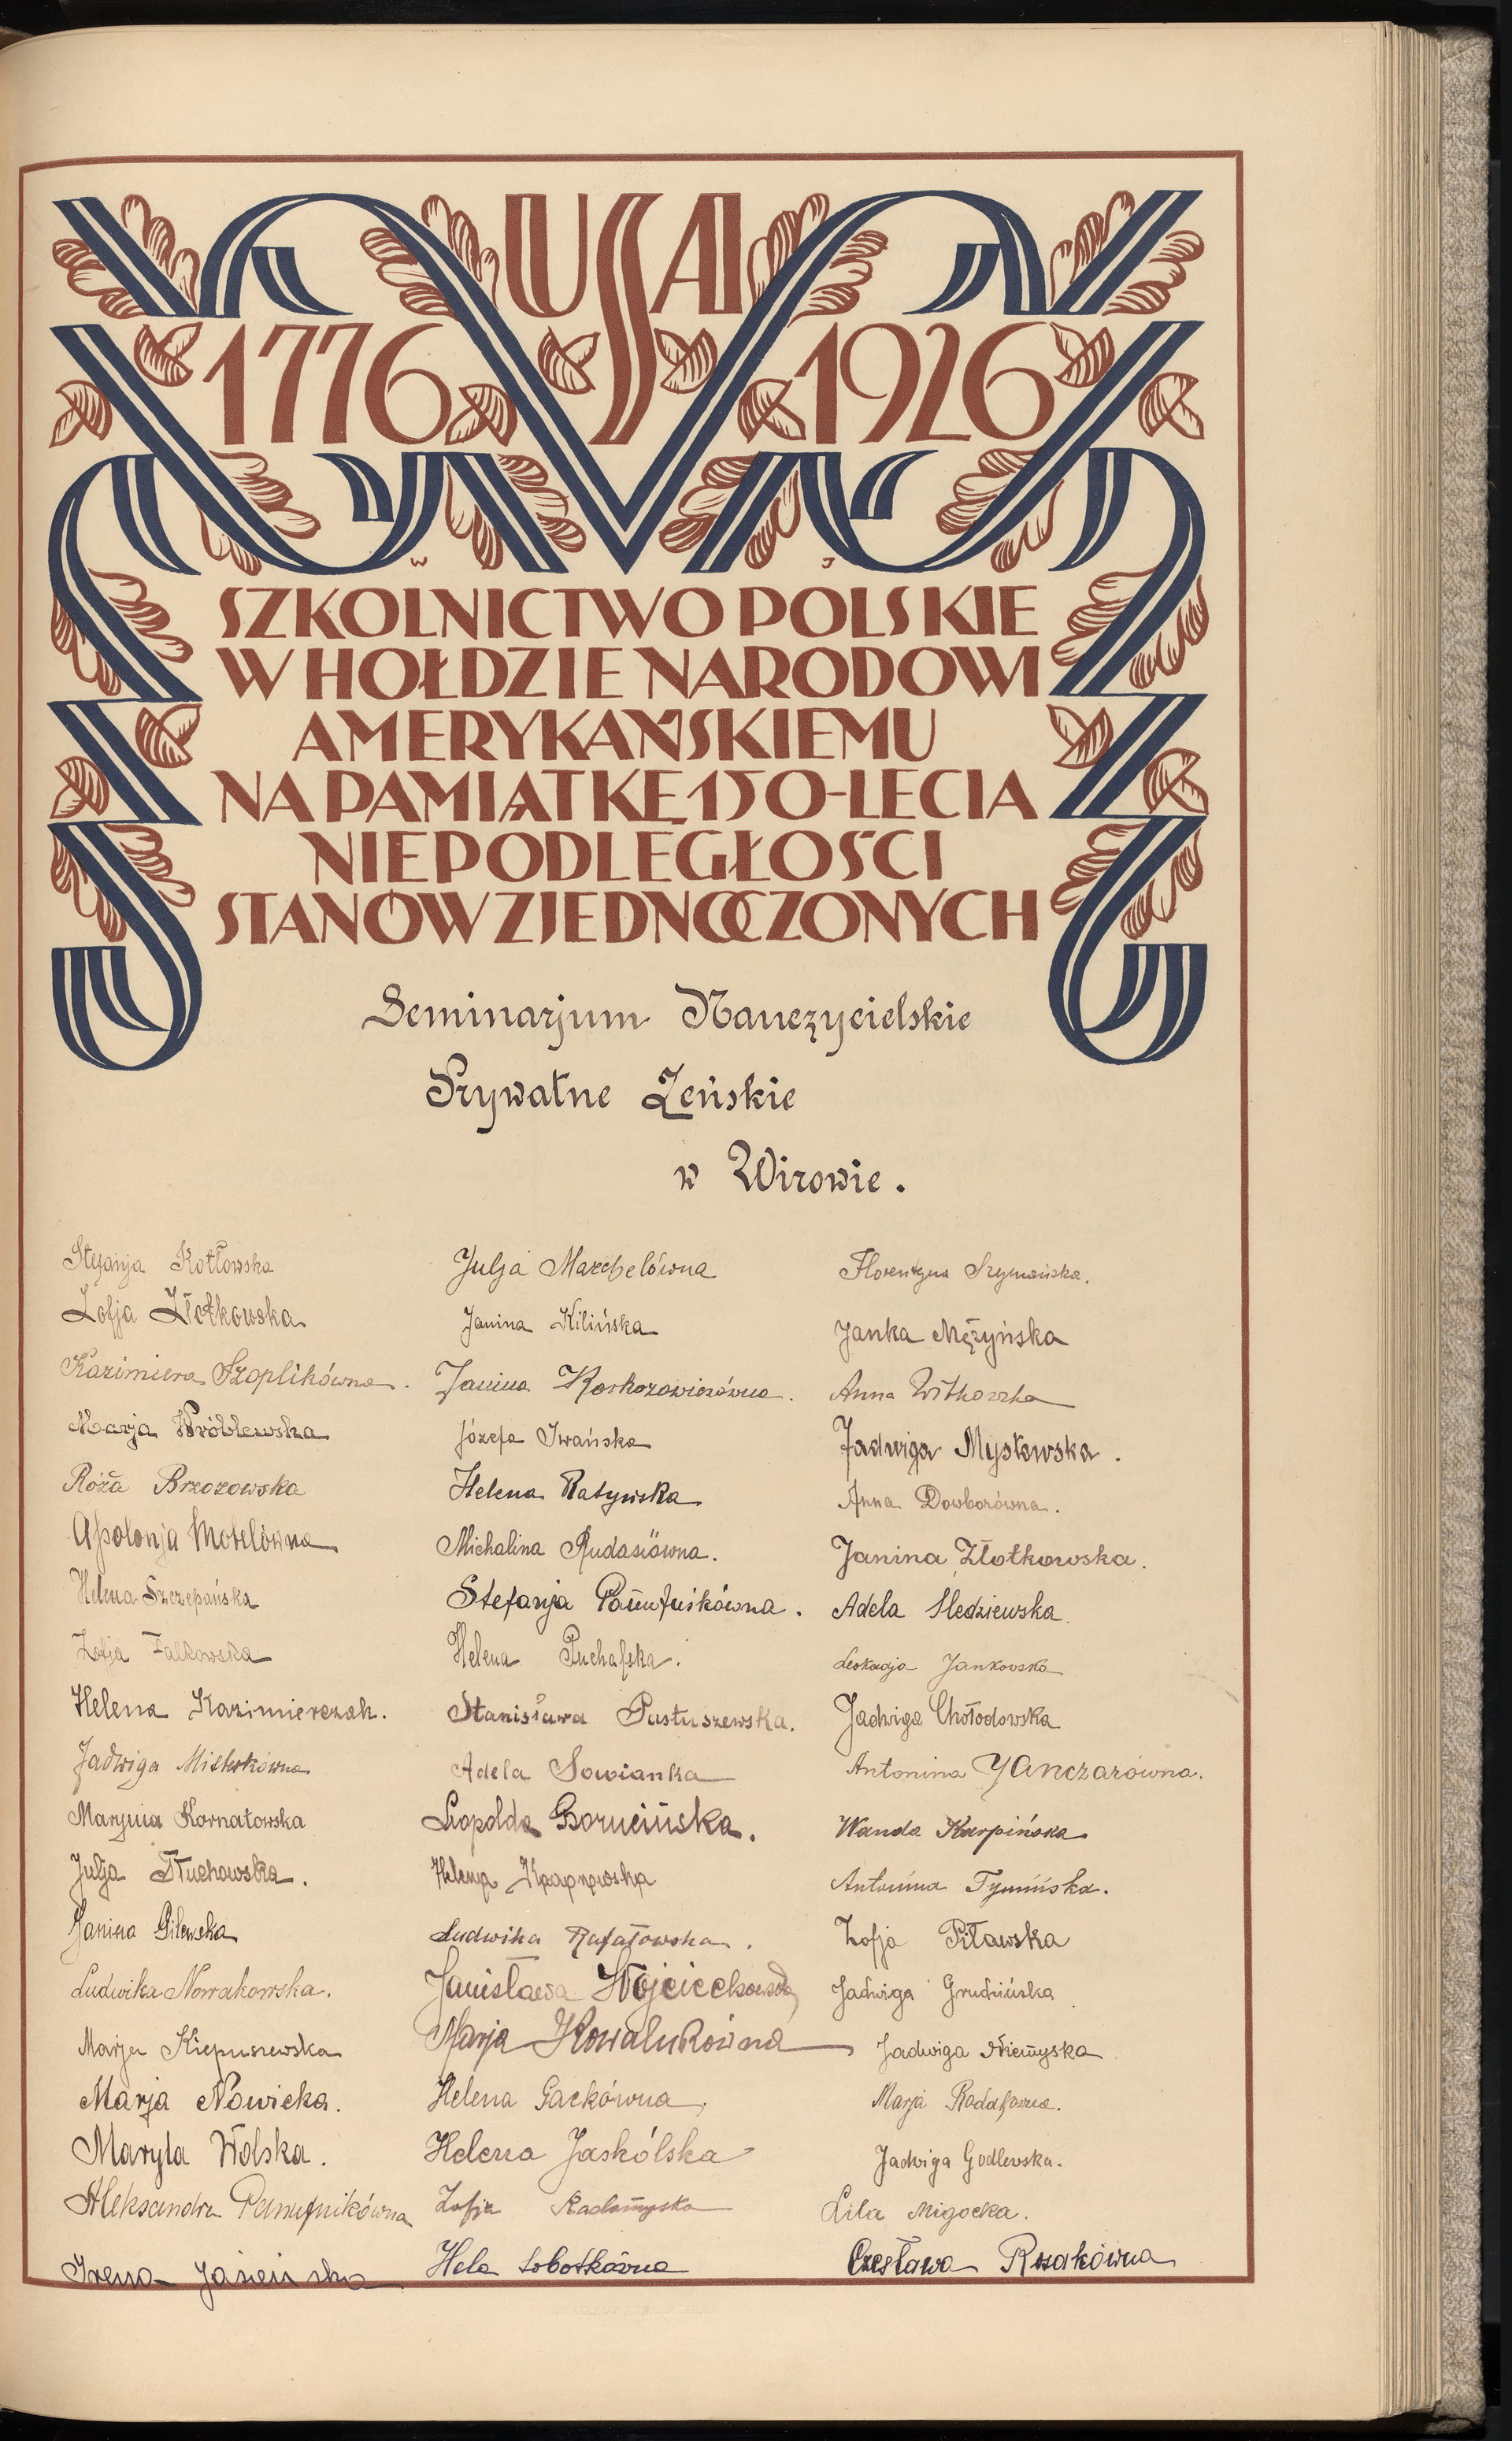 USA
1776 1926
W J
SZKOLNICTWO POLSKIE
W HOŁDZIE NARODOWI
AMERYKAŃSKIEMU
NA PAMIĄTKĘ 150-LECIA
NIEPODLEGŁOŚCI
STANÓW ZJEDNOCZONYCH
Seminarjum Nauczycielskie
Prywatne Żeńskie
w Wirowie.
Stefanja Kotłowska
Zofja Złotkowska
Kazimiera Szoplikówna.
Marja Wróblewska
Róża Brzozowska
Apolonja Mobelówna
Helena Szczepańska
Zofja Falkowska
Helena Kazimierczak.
Jadwiga
Maryna Kornatowska
Julja Tłuchowska.
Janina Gilewska
Ludwika Nowakowska.
Marja Kiepuszewska
Marja Nowicka.
Maryla Wolska.
Aleksandra Panufnikówna
Irena Jasieńska
Julja Marchelówna
Janina Kilińska
Janina
Józefa Iwańska
Helena Ratyńska
Michalina
Stefanja Panufnikówna.
Helena Puchalska.
Stanisława Pastuszewska.
Adela Sowianka
Leopolda Borucińska.
Helena
Ludwika Rafałowska.
Stanisława Wojciechowska
Marja Kowalukówna
Helena Gackówna
Helena Jaskólska
Zofja Radomyska
Hela Sobotkówna
Florentyna Szymańska.
Janka Mężyńska
Anna Witkowska
Jadwiga Mysłowska.
Anna Dowborówna.
Janina Złotkowska.
Adela Śledziewska.
Leokadja Jankowska
Jadwiga Chołodowska
Antonina Yanczarówna.
Wanda Karpińska
Antonina Tymińska.
Zofja Piławska
Jadwiga Grudzińska
Jadwiga Niemyska
Marja
Jadwiga Godlewska.
Lila Migocka.
Czesława Rosakówna